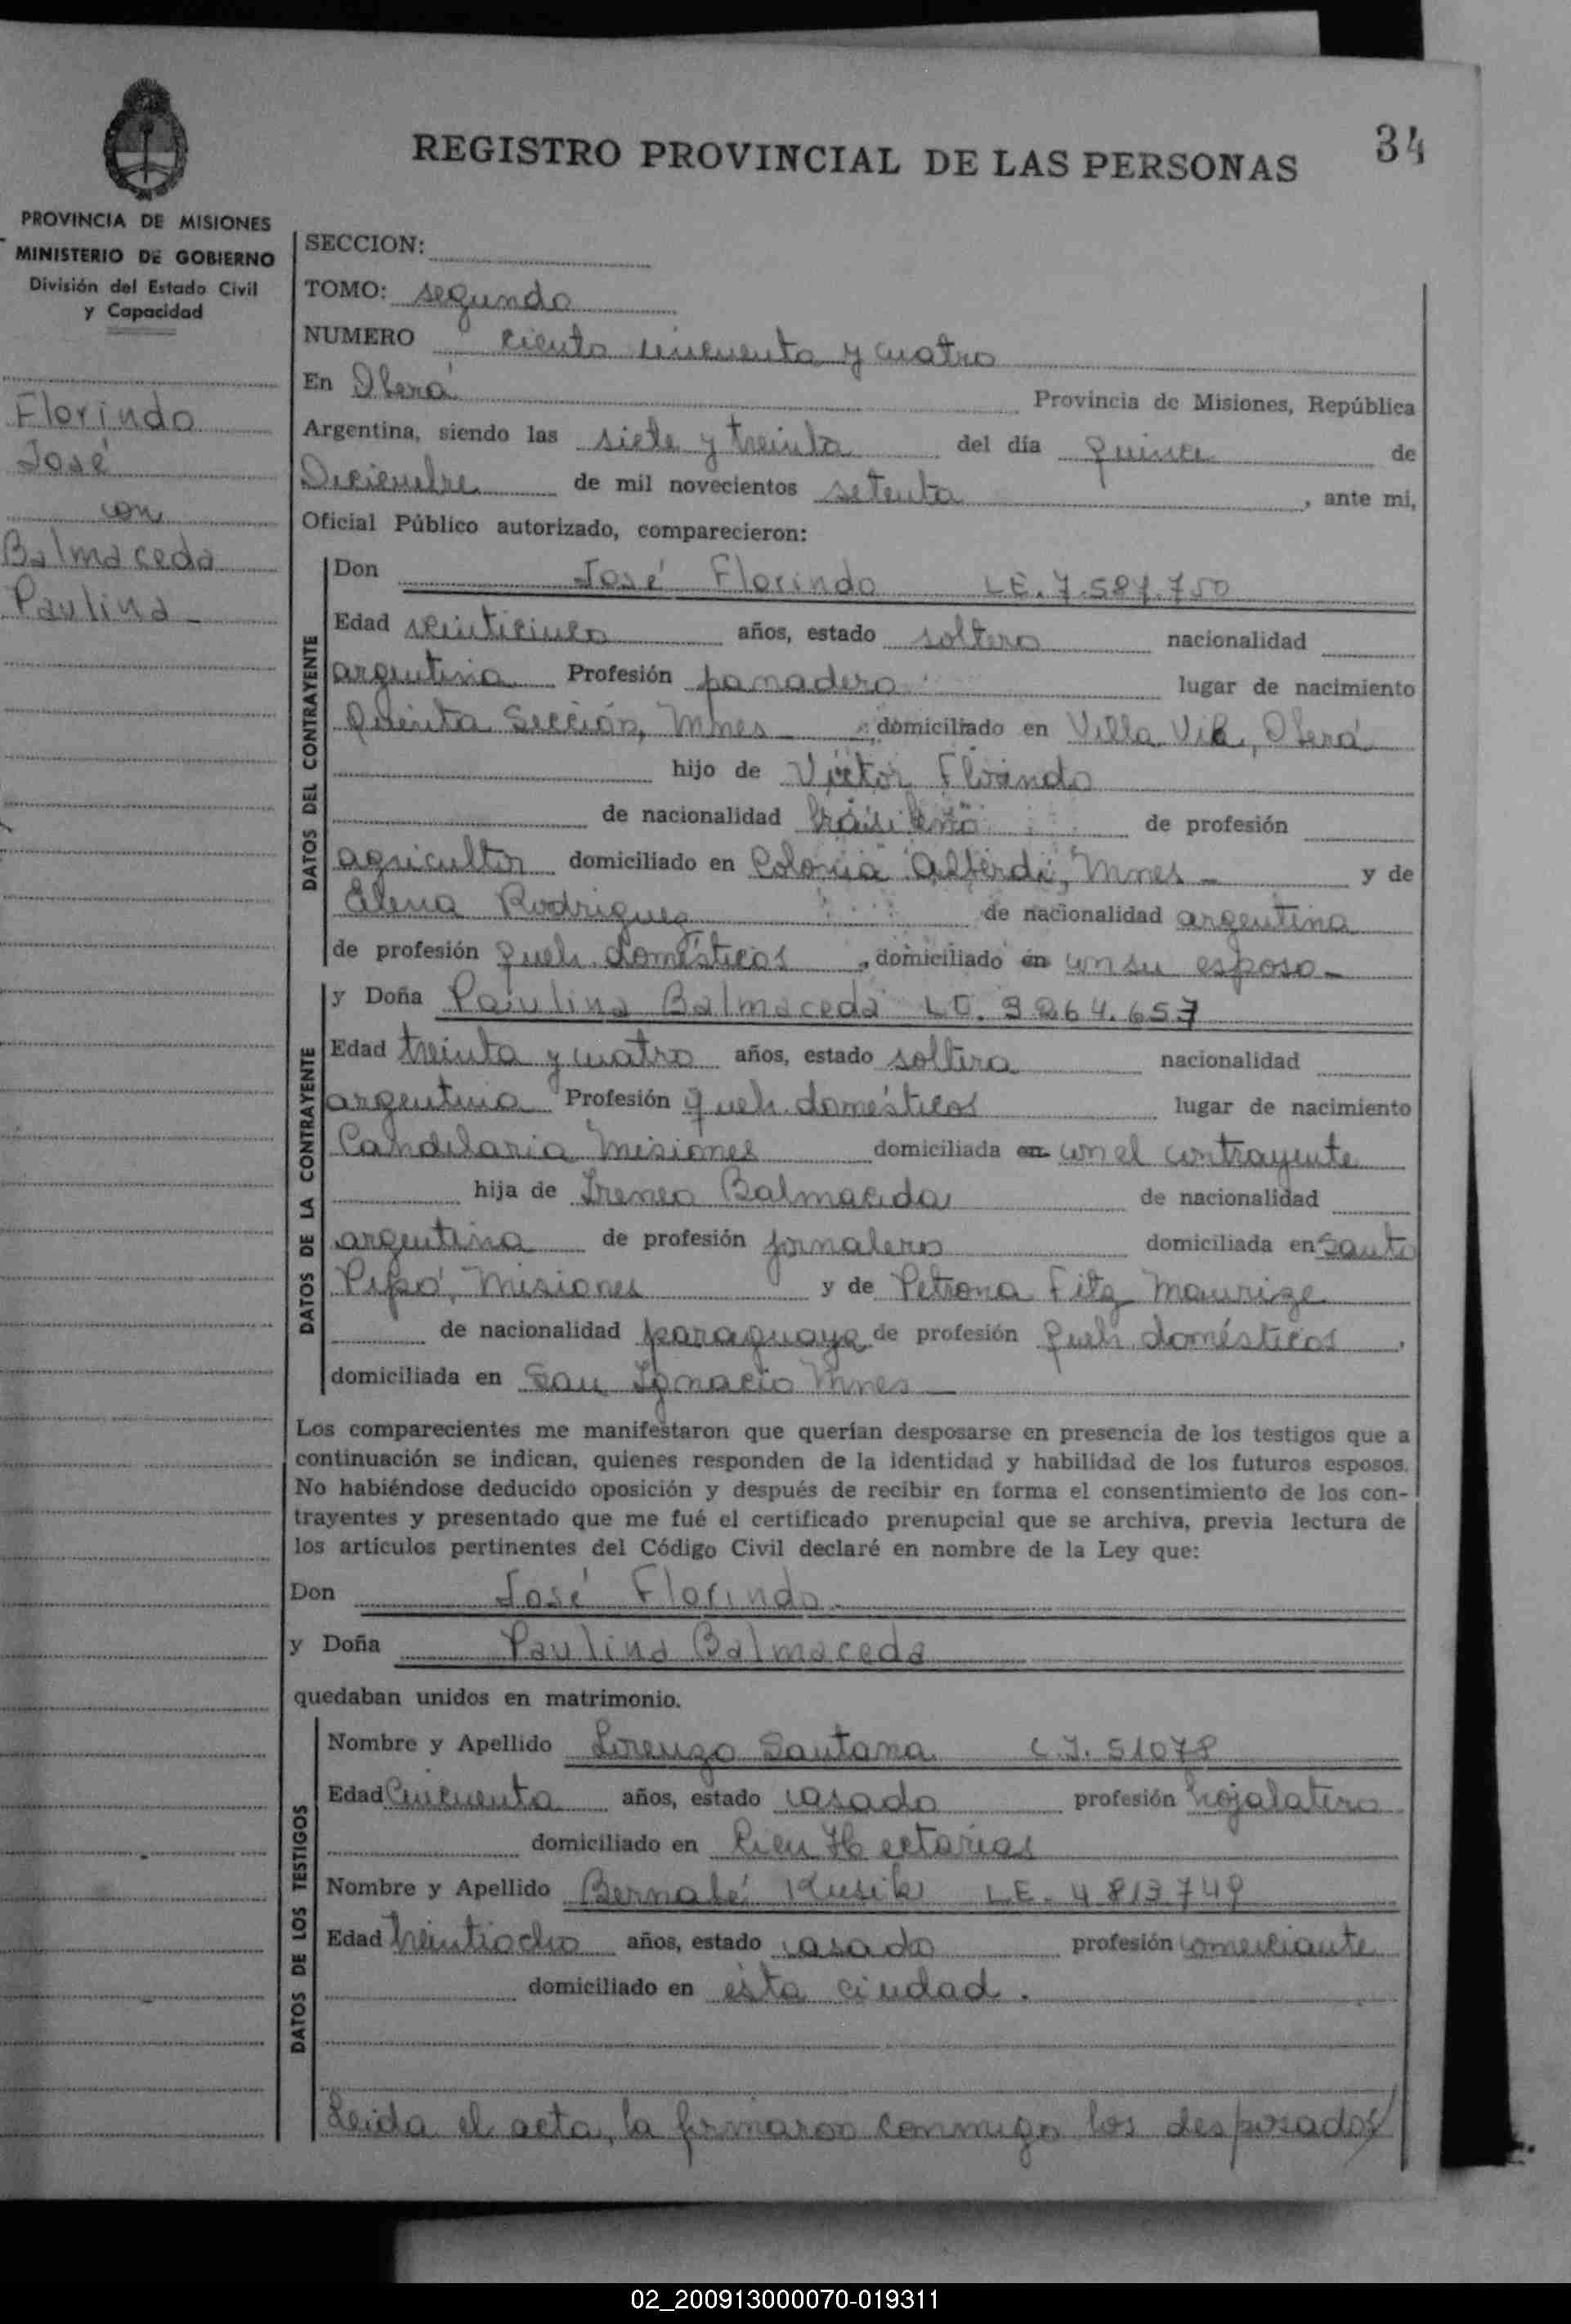 34
REGISTRO PROVINCIAL DE LAS PERSONAS
PROVINCIA DE MISIONES
MINISTERIO DE GOBIERNO
División del Estado Civil
y Capacidad
Florindo
José
con
Balmaceda
Paulina
SECCION:
TOMO: segundo
NUMERO ciento cincuenta y cuatro
En Oberá Provincia de Misiones, República
Argentina, siendo las siete y treinta del día quince de
Diciembre de mil novecientos setenta, ante mi,
Oficial Público autorizado, comparecieron:
DATOS DEL CONTRAYENTE
Don José Florindo LE. 7.587.750
Edad veinticinco años, estado soltero nacionalidad
argentina Profesión panadero lugar de nacimiento
Quinta Sección, Mnes domiciliado en Villa Oberá
hijo de Víctor Florindo
de nacionalidad brasileño de profesión
agricultor domiciliado en Colonia Alberdi, Mnes - y de
Elena Rodriguez de nacionalidad argentina
de profesión queh. domésticos, domiciliado en con su esposo -
DATOS DE LA CONTRAYENTE
y Doña Paulina Balmaceda LC. 3264.657
Edad treinta y cuatro años, estado soltera nacionalidad
argentina Profesión queh. domésticos lugar de nacimiento
Candelaria Misiones domiciliada en con el contrayente
hija de Ireneo Balmaceda de nacionalidad
argentina de profesión jornalero domiciliada en Santo
Pipó, Misiones y de Petrona Fitz Maurize
de nacionalidad paraguaya de profesión queh. domésticos,
domiciliada en San Ignacio Mnes -
Los comparecientes me manifestaron que querían desposarse en presencia de los testigos que a
continuación se indican, quienes responden de la identidad y habilidad de los futuros esposos.
No habiéndose deducido oposición y después de recibir en forma el consentimiento de los con-
trayentes y presentado que me fué el certificado prenupcial que se archiva, previa lectura de
los artículos pertinentes del Código Civil declaré en nombre de la Ley que:
Don José Florindo.
y Doña Paulina Balmaceda
quedaban unidos en matrimonio.
DATOS DE LOS TESTIGOS
Nombre y Apellido Lorenzo Santana C.I. 51078
Edad Cincuenta años, estado casado profesión hojalatero
domiciliado en Cien Hectarias
Nombre y Apellido Bernabé LE. 4813749
Edad treintiocho años, estado casado profesión comerciante
domiciliado en esta ciudad.
Leida el acta, la firmaron conmigo los desposados
02_200913000070-019311